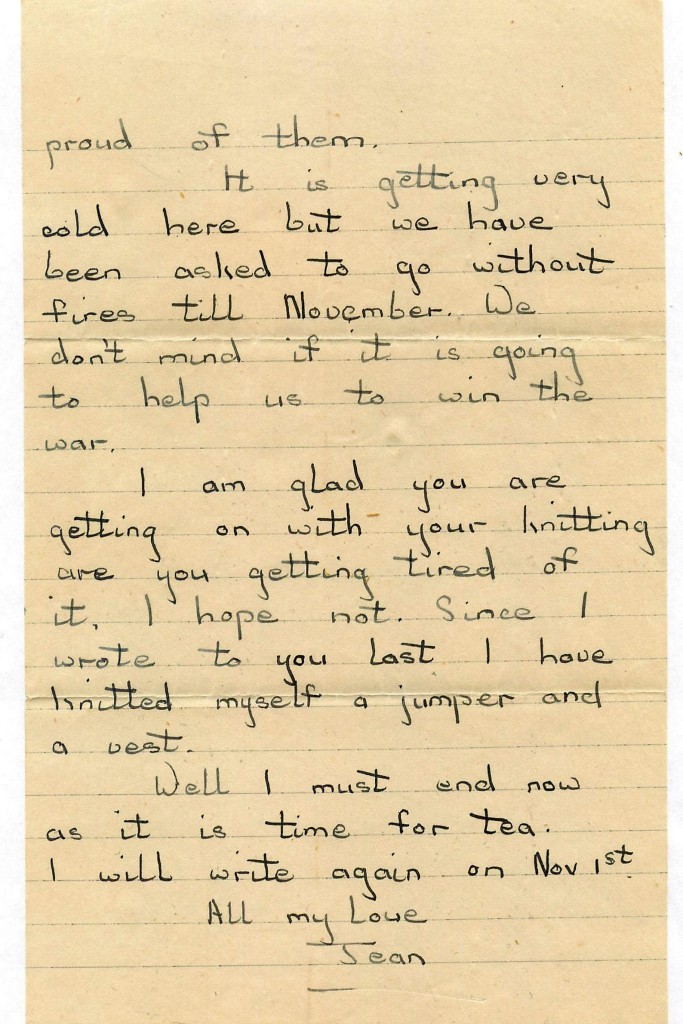 proud of them.
It is getting very
cold here but we have
been asked to go without
fires till November. We
don't mind if it is going
to help us to win the
war.
I am glad you are
getting on with your knitting
are you getting tired of
it, I hope not. Since I
wrote to you last I have
knitted myself a jumper and
a vest.
Well I must end now
as it is time for tea.
I will write again on Nov 1st
All my Love
Jean